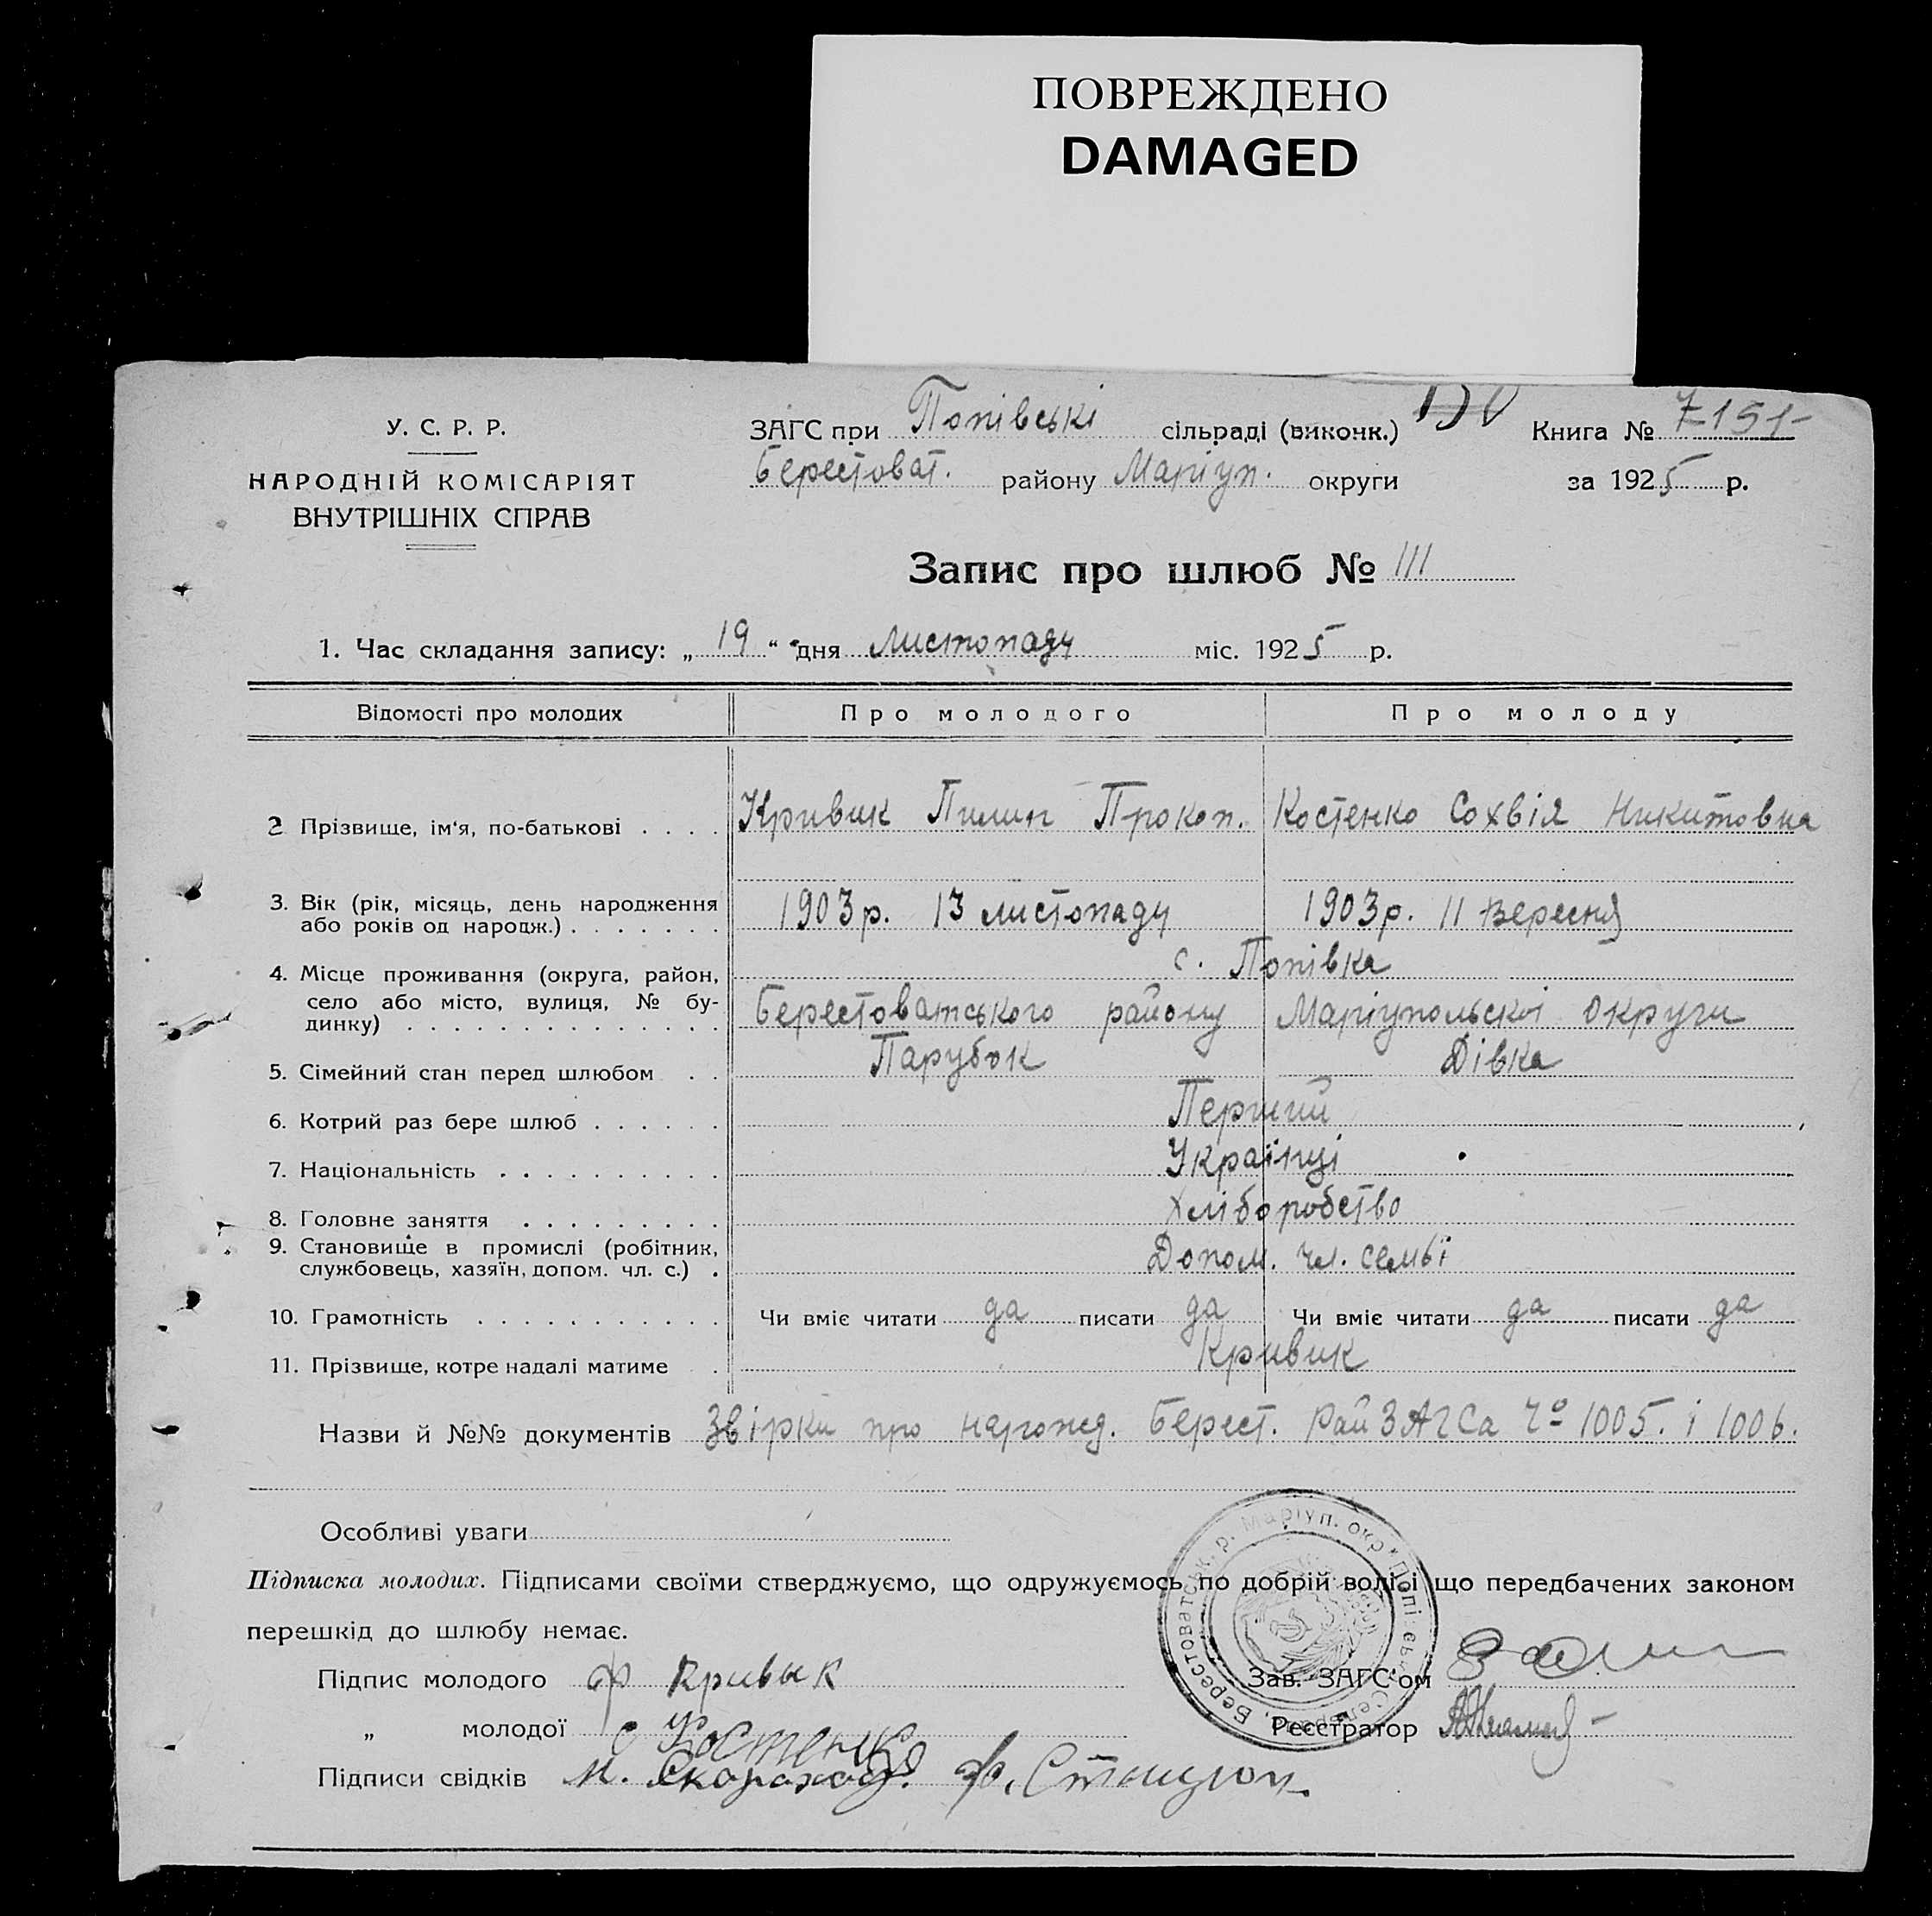 ПОВРЕЖДЕНО
DAMAGED
У. С. Р. Р.
НАРОДНІЙ КОМІСАРІЯТ
ВНУТРІШНІХ СПРАВ
ЗАГС при Попівські сільраді (виконк.)
Берестоват. району Маріуп. округи
Книга № 7 151-
за 1925 р.
Запис про шлюб № 111
1. Час складання запису: „ 19 “ дня листопаду міс. 1925 р.
Відомості про молодих Про молодого Про молоду
2 Прізвище, ім'я, по-батькові . . . . Кривик Пилип Прокоп. Костенко Сохвія Никитовна
3. Вік (рік, місяць, день народження
або років од народж.) . . . . . . . 1903р. 13 листопаду 1903р. 11 вересня
с. Попівка
4. Місце проживання (округа, район,
село або місто, вулиця, № бу-
динку) . . . . . . . . . . . . . . Берестоватського району Маріупольскоі округи
5. Сімейний стан перед шлюбом . . Парубок Дівка
6. Котрий раз бере шлюб . . . . . . Перший
7. Національність . . . . . . . . . . Українці
8. Головне заняття . . . . . . . . . Хліборобство
9. Становище в промислі (робітник,
службовець, хазяїн, допом. чл. с.) . Допом. чл. семьї
10. Грамотність . . . . . . . . . . . Чи вміє читати да писати да Чи вміє читати да писати да
11. Прізвище, котре надалі матиме . Кривик
Назви й №№ документів Звірки про народжд. Берест. РайЗАГСа Чо 1005. і 1006.
Особливі уваги
Підписка молодих. Підписами своїми стверджуємо, що одружуємось по добрій волі і що передбачених законом
перешкід до шлюбу немає.
Підпис молодого ф Кривык
„ молодої С Костенко
Підписи свідків М. Скороход. Ф.
Зав. ЗАГС'ом
Реєстратор
Берестоватськ. р. Маріуп. окр.